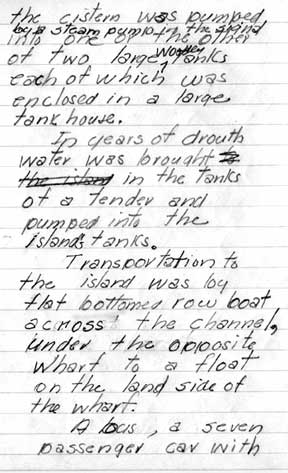 the cistern was pumped
by a steam pump
into one or the other
of two large wooden tanks
each of which was
enclosed in a large
tank house.
In years of drouth
water was brought to
the island in the tanks
of a tender and
pumped into the
island's tanks.
Transportation to
the island was by
flat bottomed row boat
across the channel,
under the opposite
wharf to a float
on the land side of
the wharf.
A bus, a seven
passenger car with